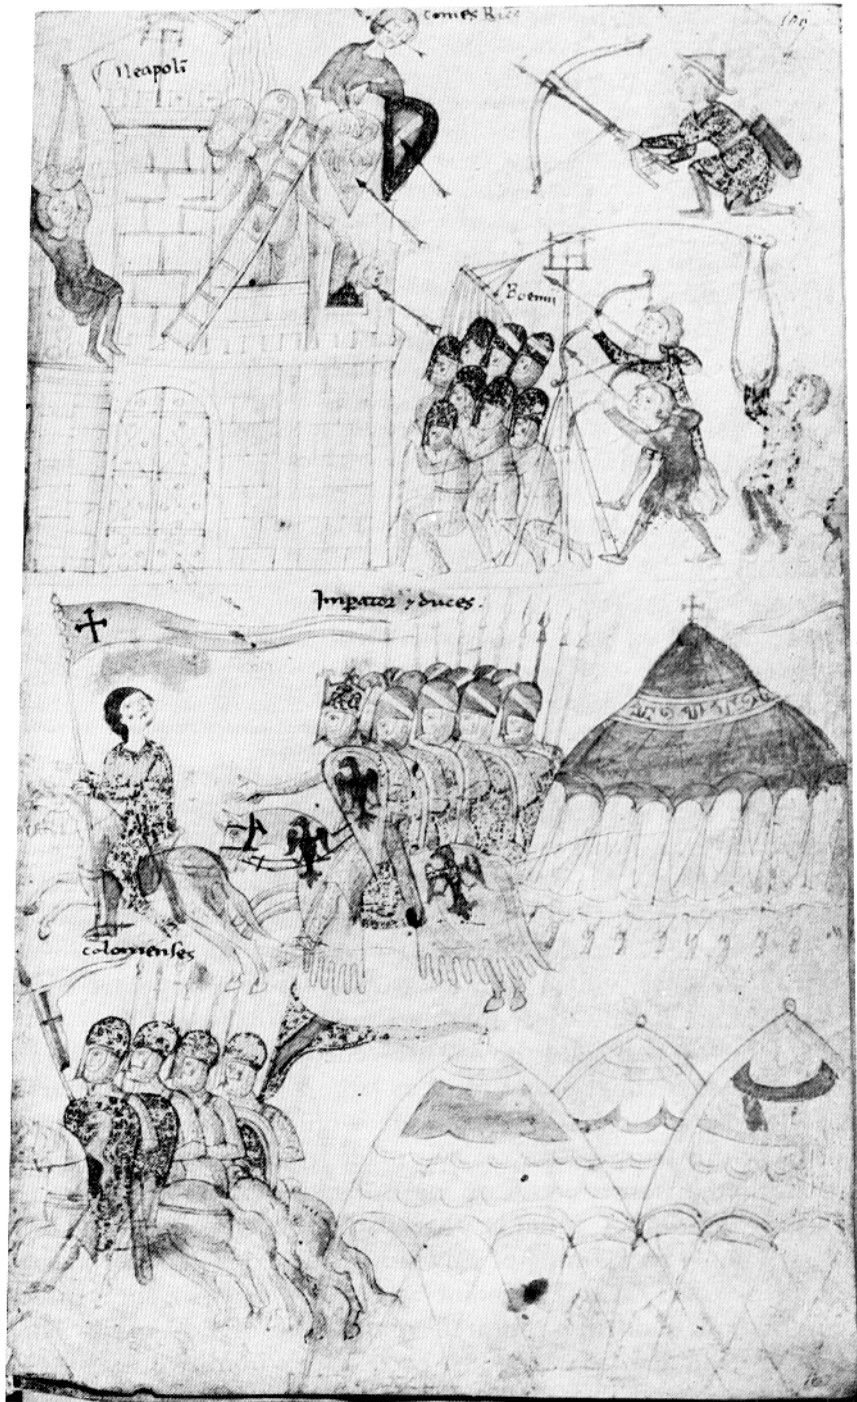 comes Ricc
109
Neapolῑ
Boemii
Imꝑator ⁊ duces.
colonienses